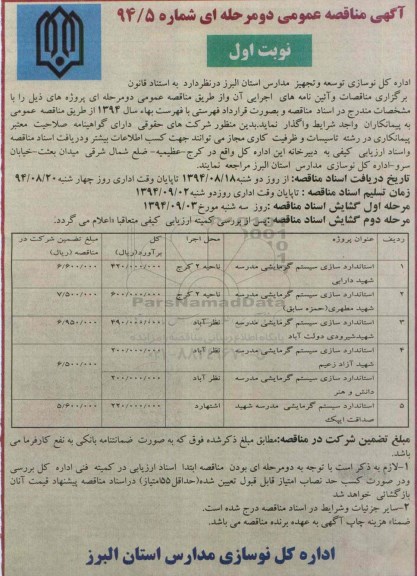 آگهی مناقصه عمومی دومرحله ای شماره ۹۴/۵
نوبت اول
اداره کل نوسازی توسعه وتجهیز مدارس استان البرز درنظردارد به استناد قانون
برگزاری مناقصات وآئین نامه های اجرایی آن واز طریق مناقصه عمومی دومرحله ای پروژه های ذیل را با
مشخصات مندرج در اسناد مناقصه و بصورت قرارداد فهرستی با فهرست بهاء سال ۱۳۹۴ از طریق مناقصه عمومی
به پیمانکاران واجد شرایط واگذار نمایدبدین منظور شرکت های حقوقی دارای گواهینامه صلاحیت معتبر
پیمانکاری در رشته تاسیسات و ظرفیت کاری مجاز می توانند جهت کسب اطلاعات بیشتر ودریافت اسناد مناقصه
واسناد ارزیابی کیفی به دبیرخانه این اداره کل واقع در کرج-عظیمیه- ضلع شمال شرقی میدان بعثت-خیابان
سرو-اداره کل نوسازی مدارس استان البرز مراجعه نمایند.
تاریخ دریافت اسناد مناقصه: از روز دو شنبه۱۳۹۴/۰۸/۱۸ تاپایان وقت اداری روز چهار شنبه ۹۴/۰۸/۲۰
زمان تسلیم اسناد مناقصه : تاپایان وقت اداری روزدو شنبه ۱۳۹۴/۰۹/۰۲
مرحله اول گشایش اسناد مناقصه :روز سه شنبه مورخ۱۳۹۴/۰۹/۰۳
مرحله دوم گشایش اسناد مناقصه:پس از بررسی کمیته ارزیابی کیفی متعاقبا اعلام می گردد.
ردیف عنوان پروژه محل اجرا کل برآورد(ریال) مبلغ تضمین شرکت در مناقصه (ریال)
۱ استاندارد سازی سیستم گرمایشی مدرسه شهید دارابی ناحیه ۲ کرج ۴۲۰/۰۰۰/۰۰۰ ۶/۶۰۰/۰۰۰
۲ استاندارد سازی سیستم گرمایشی مدرسه شهید مطهری(حمزه سابق) ناحیه ۲ کرج ۶۰۰/۰۰۰/۰۰۰ ۷/۵۰۰/۰۰۰
۳ استاندارد سازی سیستم گرمایشی مدرسه شهیدشیرودی دولت آباد نظرآباد ۴۹۰/۰۰۰/۰۰۰ ۶/۹۵۰/۰۰۰
۴ استاندارد سازی سیستم گرمایشی مدرسه شهید آزاد زعیم نظر آباد ۲۰۰/۰۰۰/۰۰۰ ۶/۵۰۰/۰۰۰
استاندارد سازی سیستم گرمایشی مدرسه دانش و هنر نظر آباد ۲۰۰/۰۰۰/۰۰۰
۵ استاندارد سیستم گرمایشی مدرسه شهید صداقت ایپک اشتهارد ۲۲۰/۰۰۰/۰۰۰ ۵/۶۰۰/۰۰۰
ParsNamadData
مبلغ تضمین شرکت در مناقصه:مطابق مبلغ ذکرشده فوق که به صورت ضمانتنامه بانکی به نفع کارفرما می
باشد.
۱-لازم به ذکر است با توجه به دومرحله ای بودن مناقصه ابتدا اسناد ارزیابی در کمیته فنی اداره کل بررسی
ودر صورت کسب حد نصاب امتیاز قابل قبول تعیین شده(حداقل۵۵امتیاز) دراسناد مناقصه پیشنهاد قیمت آنان
بازگشائی خواهد شد
۲-سایر جزئیات وشرایط در اسناد مناقصه درج شده است.
ضمناً هزینه چاپ آگهی به عهده برنده مناقصه می باشد.
اداره کل نوسازی مدارس استان البرز